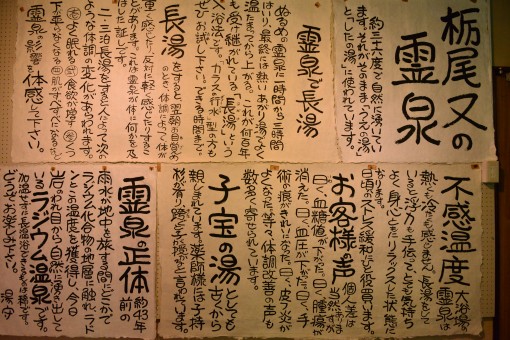 栃尾又の
霊泉
約三十六度で自然に湧いてい
ます。それがそのまま「うえの湯」
「したの湯」に使われています。
霊泉で長湯
ぬるめの霊泉に一時間から二時間
はいり、最終には熱いあがり湯でよく
温たまってから上がる。これが何百年
も受け継がれている「長湯」という
入浴法です。「カラスの行水」型の方も
ぜひお試し下さい。できる時間まで。
長湯をすると翌朝お目覚め
のとき、体調によって体が
重く感じたり、反対に軽く感じたりするこ
とがあります。これは霊泉が体に何かを及
ぼした証しです。
二・三泊長湯をすると人によって次の
ような体調の変化があらわれます。
よく眠れる 食欲が増す
霊泉の影響を体感して下さい。
不感温度 大浴場の
霊泉は
熱さ冷たさも感じません。長湯をして
いると浮力も手伝って、とても気持ち
よく、身も心もリラックスした状態に。
日頃のストレス緩和にと役買います。
お客様の声 個人差は
当然ありますが
曰く、血糖値が下がった。曰く、腫瘍が
消えた。曰く、血圧が下がった。曰く、手
術の痕がきれいになった。曰く、皮フ炎が
よくなった等々、体調改善の声も
数多く寄せられています。
子宝の湯としても
古くから
親しまれています。薬師様には子持
杉が有り、跨ぐと子を授かると言われています。
霊泉の正体 約43年
前の
雨水が地中を旅する間にどこかで
ラジウム化合物の地層に触れ、ラド
ンとこの温度を獲得し、今日
岩のわれ目から自然に湧き出して
いるラジウム温泉です。
どうぞお楽しみ下さい。 湯守